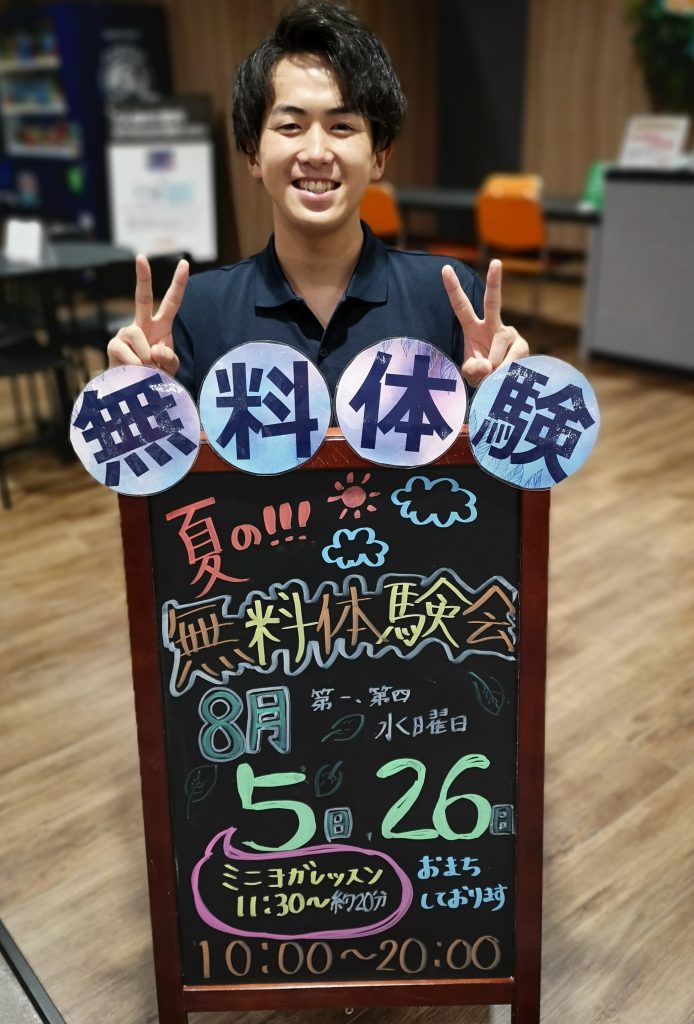 無料体験
夏の!!!
無料体験会
8月 第一、第四
水曜日
5日、26日
ミニヨガレッスン
11:30〜約20分
おまち
しております
10:00〜20:00